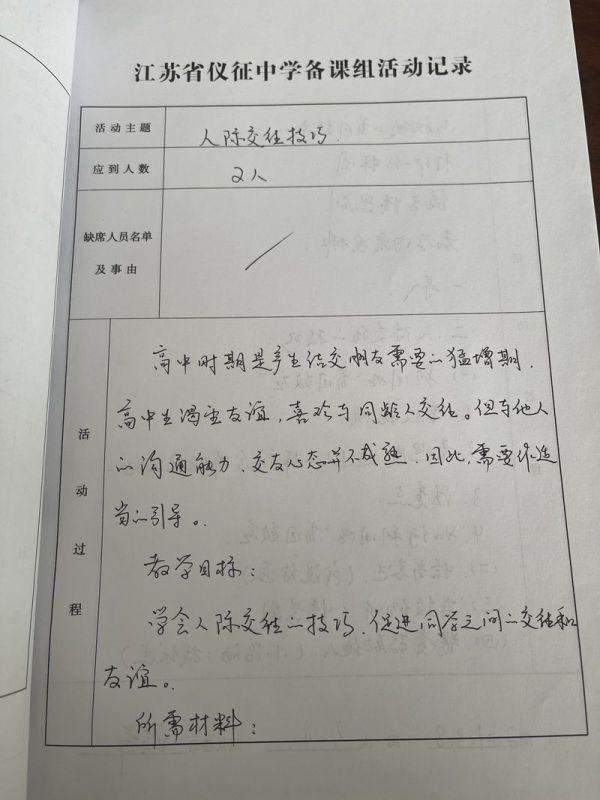 江苏省仪征中学备课组活动记录
活动主题
人际交往技巧.
应到人数
2人
缺席人员名单
及事由
/
活动过程
高中时期是产生结交朋友需要的猛增期.
高中生渴望友谊,喜欢与同龄人交往。但与他人
的沟通能力、交友心态并不成熟.因此,需要作适
当的引导。
教学目标:
学会人际交往的技巧.促进同学之间的交往和
友谊。
所需材料: